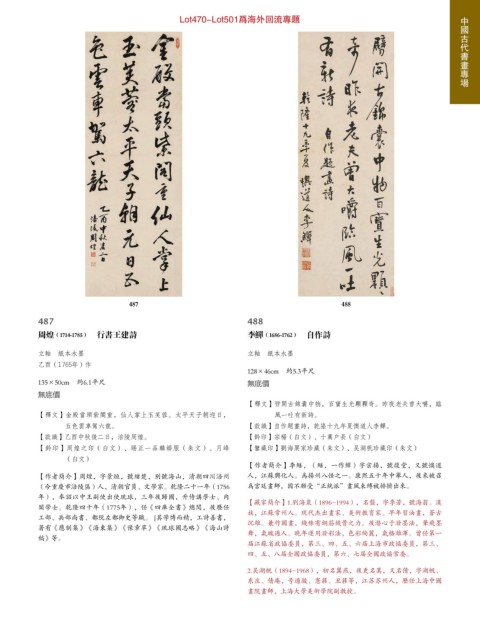 Lot470-Lot501爲海外回流專題
中國古代書畫專場
金殿當頭紫閣重仙人掌上
玉芙蓉太平天子朝元日五
色雲車駕六龍
乙酉中秋后二日
涪陵周煌
劈開古錦囊中物百寶生光顆
奇昨夜老夫曾大嚼臨風一吐
有新詩 自作題畫詩
乾隆十九年夏
懊道人李鱓
487
488
487
周煌（1714-1785） 行書王建詩
立軸 紙本水墨
乙酉（1765年）作
135×50cm 約6.1平尺
無底價
【釋文】金殿當頭紫閣重，仙人掌上玉芙蓉。太平天子朝迎日，
五色雲車駕六龍。
【款識】乙酉中秋後二日，涪陵周煌。
【鈐印】周煌之印（白文）、賜正一品
（白文）
【作者簡介】周煌，字景垣，號緒楚，
（今重慶市涪陵區）人，清朝官員、文學家。乾隆二十一年（1756
年），奉詔以中正副使出使琉球，三年後歸國，升侍講學士、內
閣學士。乾隆四十年（1775年），任《四庫全書》總閱，後歷任
工部、兵部尚書、都院左都御史等職。
著有《應制集》《海東集》《豫章草》《琉球國志略》《海山詩
稿》等。
488
李鱓（1686-1762） 自作詩
立軸 紙本水墨
128×46cm 約5.3平尺
無底價
【釋文】劈開古錦囊中物，百寶生光顆顆奇。昨夜老夫曾大嚼，臨
風一吐有新詩。
【款識】自作題畫詩，乾隆十九年夏懊道人李鱓。
【鈐印】宗楊（白文）、十萬戶長（白文）
【鑒藏印】劉海粟家珍藏（朱文）、吳湖帆珍藏印（朱文）
【作者簡介】李鱓，（鱓，一作觶）字宗揚，號復堂，又號懊道
人，江蘇興化人。為揚州八怪之一。康熙五十年中舉人，後來被召
為宮廷畫師，因不願受“正統派”畫風束縛被排擠出來。
【藏家簡介】1.劉海粟（1896-1994），名槃，字季芳，號海翁。漢
族，江蘇常州人。現代杰出畫家、美術教育家。早年習油畫，蒼古
沉雄。兼作國畫，綫條有鋼筋鐵骨之力。後潛心于潑墨法，筆飛墨
舞，氣魄過人。晚年運用潑彩法，色彩絢麗，氣格雄渾。曾任第一
屆江蘇省政協委員，第三、四、五、六屆上海市政協委員，第三、
四、五、八屆全國政協委員，第六、七屆全國政協常委。
2.吳湖帆（1894-1968），初名翼燕，後更名萬，又名倩，字遹駿、
東庄，倩庵，號醜簃、書畫署名湖帆，江蘇蘇州人，歷任上海中國
畫院畫師，上海大學美術學院副教授。